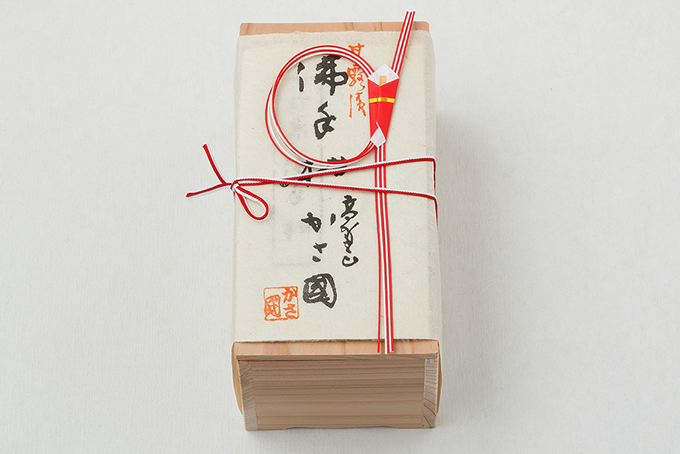 甘露漬
佛手柑
高野山
かさ國
かさ
國